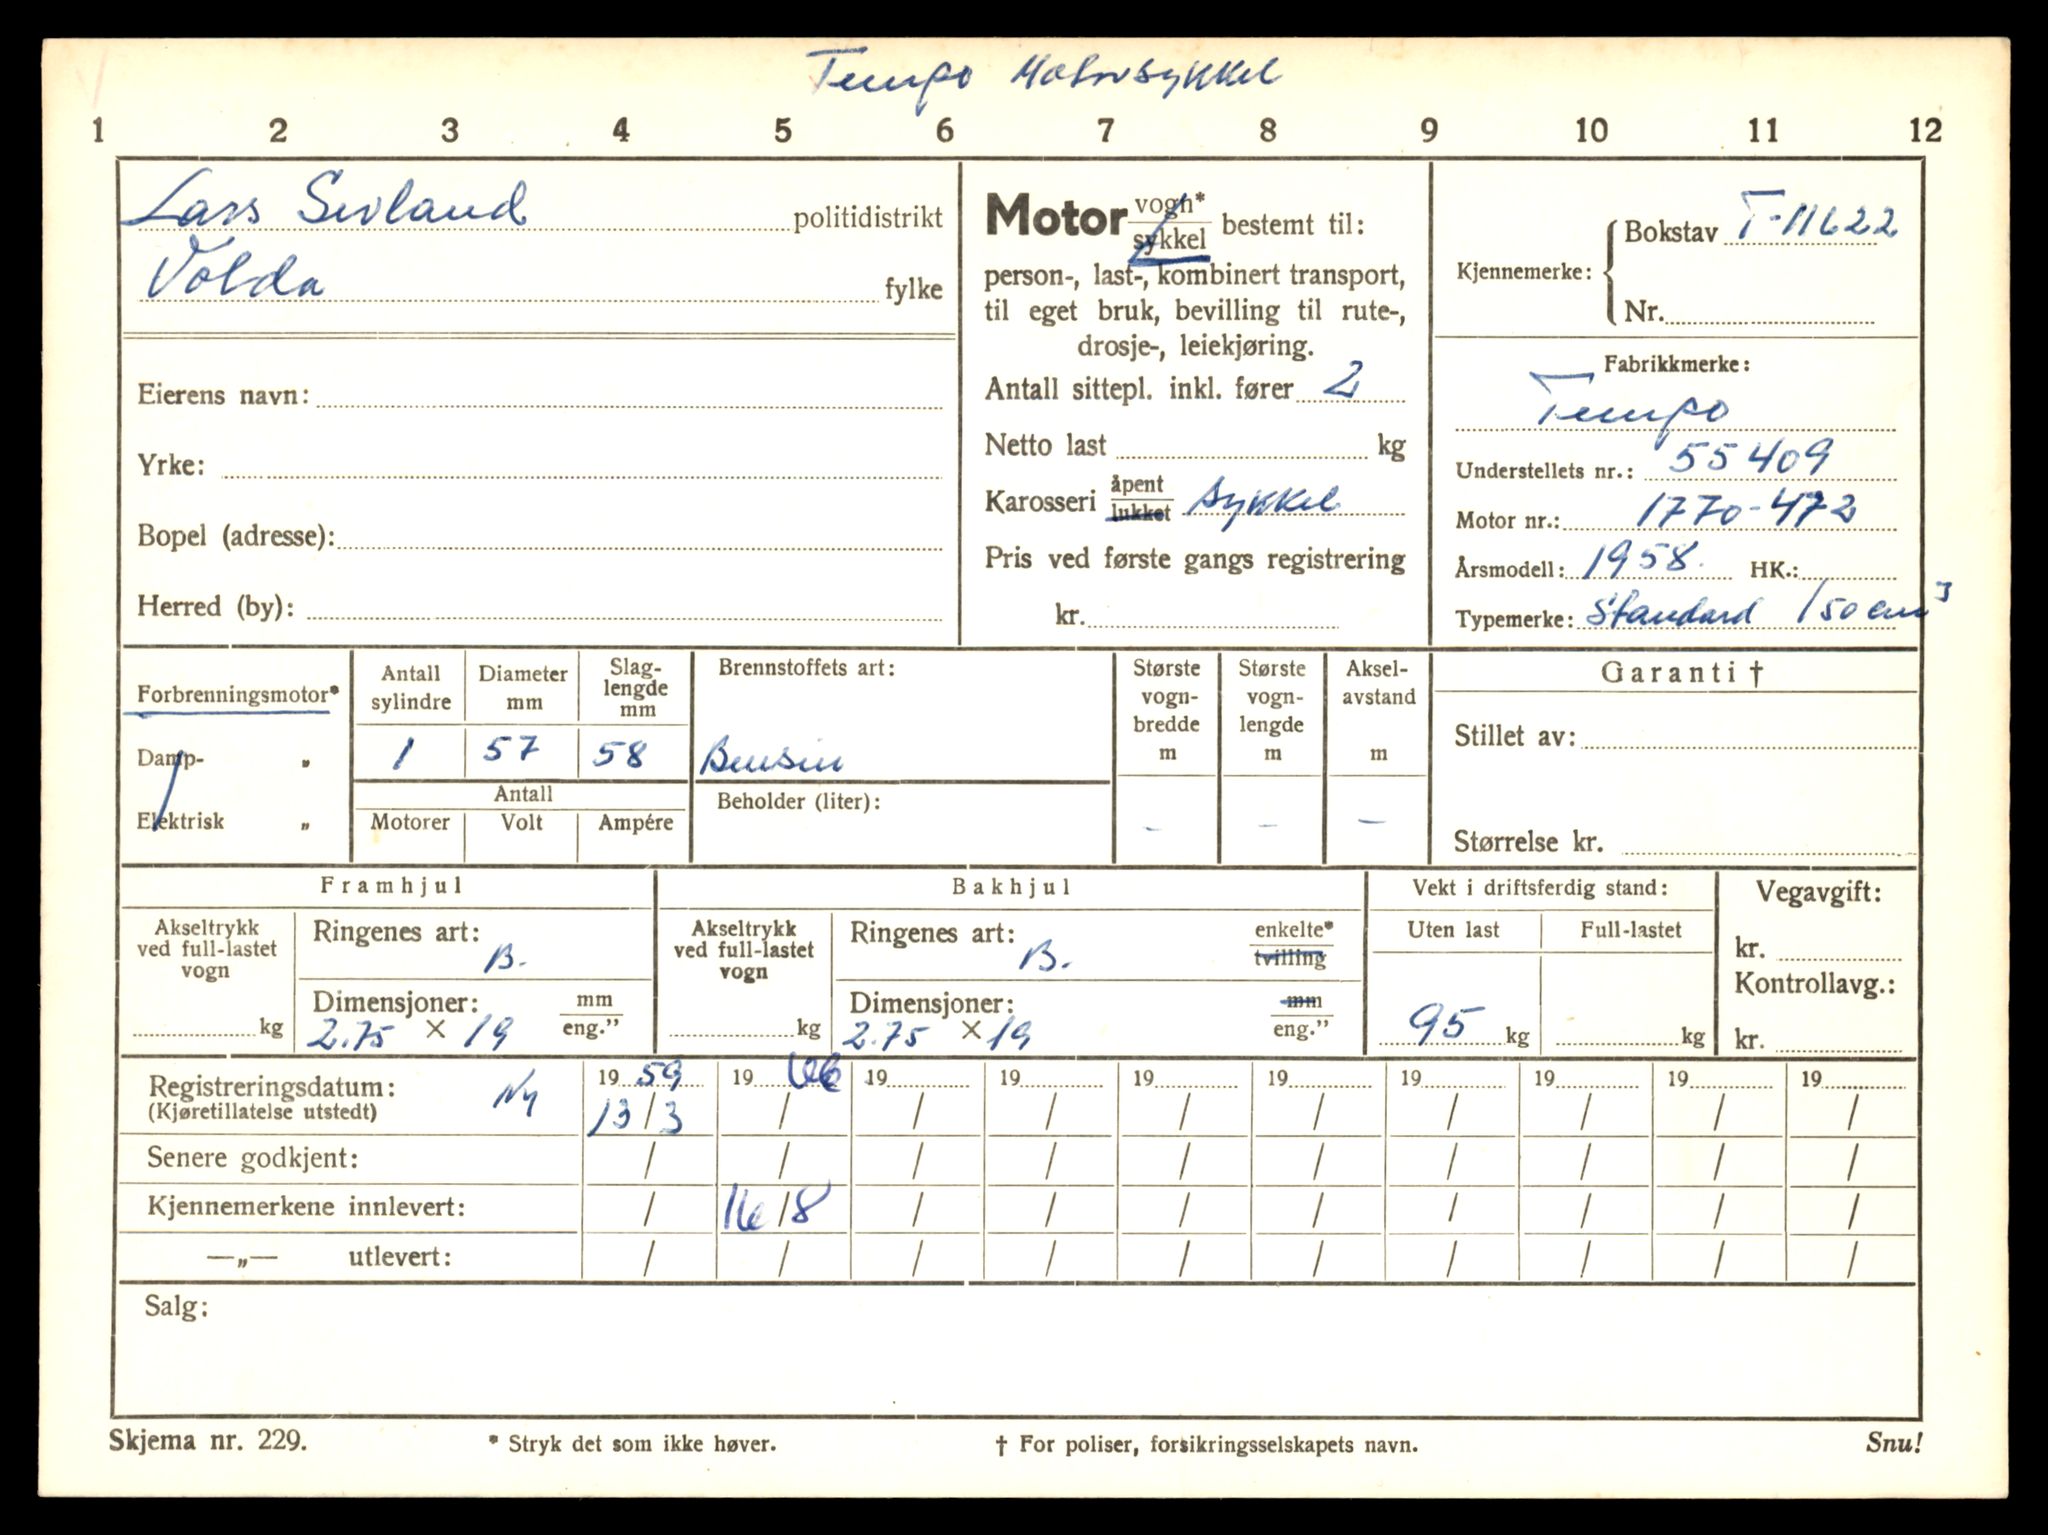 Tempo Motorsykkel
1 2 3 4 5 6 7 8 9 10 11 12
Lars Sevland politidistrikt
Volda fylke
Eierens navn:
Yrke:
Bopel (adresse):
Herred (by):
Motor vogn* sykkel bestemt til:
person-, last-, kombinert transport,
til eget bruk, bevilling til rute-,
drosje-, leiekjøring.
Antall sittepl. inkl. fører 2
Netto last kg
Karosseri åpent lukket sykkel
Pris ved første gangs registrering
kr.
Kjennemerke: Bokstav T-11622
Nr.
Fabrikkmerke:
Tempo
Understellets nr.: 55409
Motor nr.: 1770-472
Årsmodell: 1958. HK.:
Typemerke: Standard 150 cm³
Forbrenningsmotor*
Damp- „
Elektrisk „
Antall sylindre
1
Diameter mm
57
Slag-lengde mm
58
Antall
Motorer Volt Ampére
Brennstoffets art:
Bensin
Beholder (liter):
Største vogn-bredde m
-
Største vogn-lengde m
-
Aksel-avstand m
-
Garanti †
Stillet av:
Størrelse kr.
Framhjul
Akseltrykk
ved full-lastet
vogn
kg
Ringenes art:
B.
Dimensjoner: mm
2.75 × 19 eng."
Bakhjul
Akseltrykk
ved full-lastet
vogn
kg
Ringenes art: enkelte*
B. tvilling
Dimensjoner: mm
2.75 × 19 eng."
Vekt i driftsferdig stand:
Uten last Full-lastet
95 kg kg
Vegavgift:
kr.
Kontrollavg.:
kr.
Registreringsdatum: Ny 1959 1966 19 19 19 19 19 19 19 19
(Kjøretillatelse utstedt) 13/3 / / / / / / / / /
Senere godkjent: / / / / / / / / / /
Kjennemerkene innlevert: / 16/8 / / / / / / / /
—„— utlevert: / / / / / / / / / /
Salg:
Skjema nr. 229. * Stryk det som ikke høver. † For poliser, forsikringsselskapets navn. Snu!